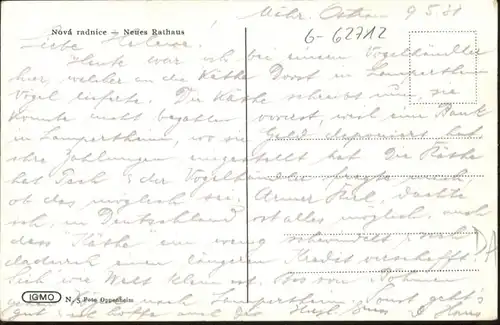 Mähr. Ostrau 9 5 31
Nová radnice – Neues Rathaus
G-62712
Liebe Helene.
Heute war ich bei einem Vogelhändler
hier, welcher an die Käthe Dorst in Lampertheim
Vögel lieferte. Die Käthe schreibt nun sie
könnte nicht bezahlen vorerst, weil eine Bank
in Lampertheim, wo sie Geld deponiert hat
ihre Zahlungen eingestellt hat. Die Käthe
hat Pech & der Vogelhändler fragte mich
ob das möglich sei. Armer Kerl, dachte
ich, in Deutschland ist alles möglich, auch
dass "Käthe" ein wenig schwindelt & sich
dadurch einen längeren Kredit verschafft.
Sieh wie Welt klein ist. Bos von Böhmen
gehen nach Lampertheim. Sonst geht's
gut & hoffe auch das Herzl. Gruss Hans
IGMO N. 5 Foto Oppenheim